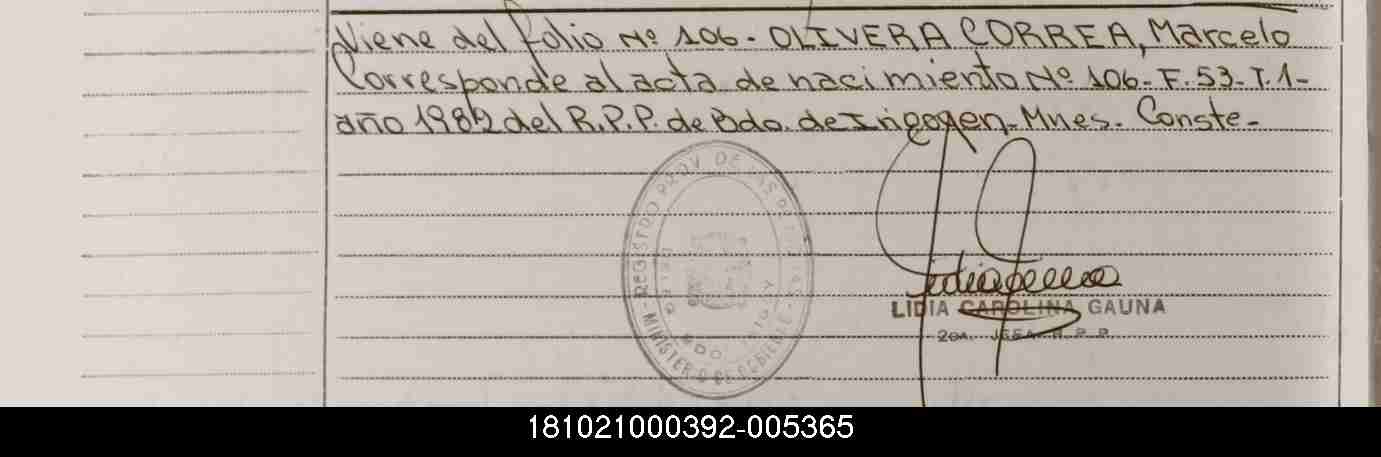 Viene del folio Nº 106.- OLIVERA CORREA, Marcelo
Corresponde al acta de nacimiento Nº 106- F. 53- T. 1-
año 1982 del R.P.P. de Bdo. de Irigoyen- Mnes.- Conste-
REGISTRO PROV. DE LAS PERSONAS
MINISTERIO DE GOBIERNO
BDO. IRIGOY
LIDIA CAROLINA GAUNA
2DA. JEFA R.P.P.
181021000392-005365